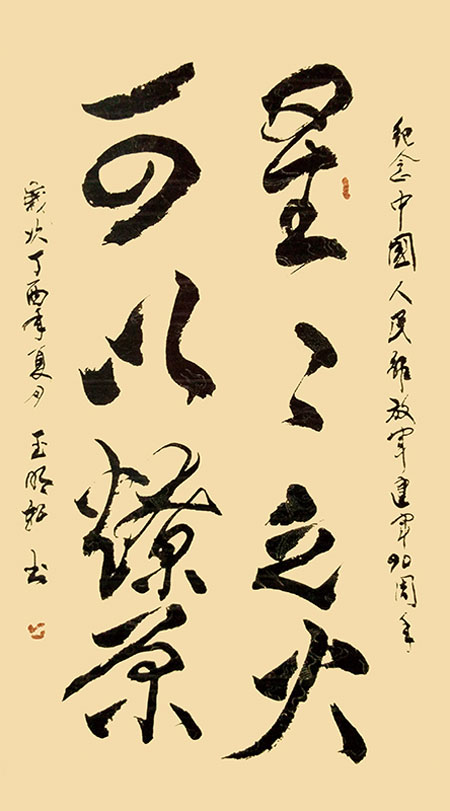 纪念中国人民解放军建军90周年
星〻之火
可以燎原
岁次丁酉年夏月 书